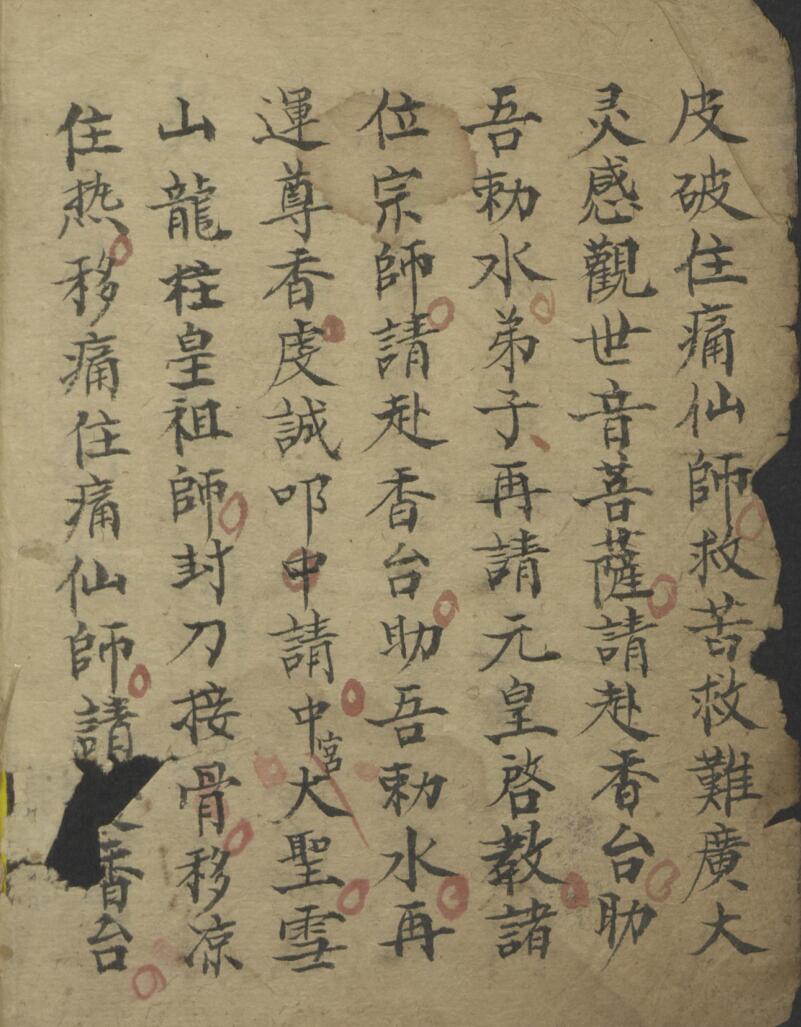 皮破住痛仙師救苦救難廣大
灵感觀世音菩薩請赴香台助
吾勅水弟子再請元皇啓教諸
位宗師請赴香台助吾勅水再
運尊香虔誠叩中請中宮大聖雪
山龍柱皇祖師封刀接骨移凉
住热移痛住痛仙師請香台